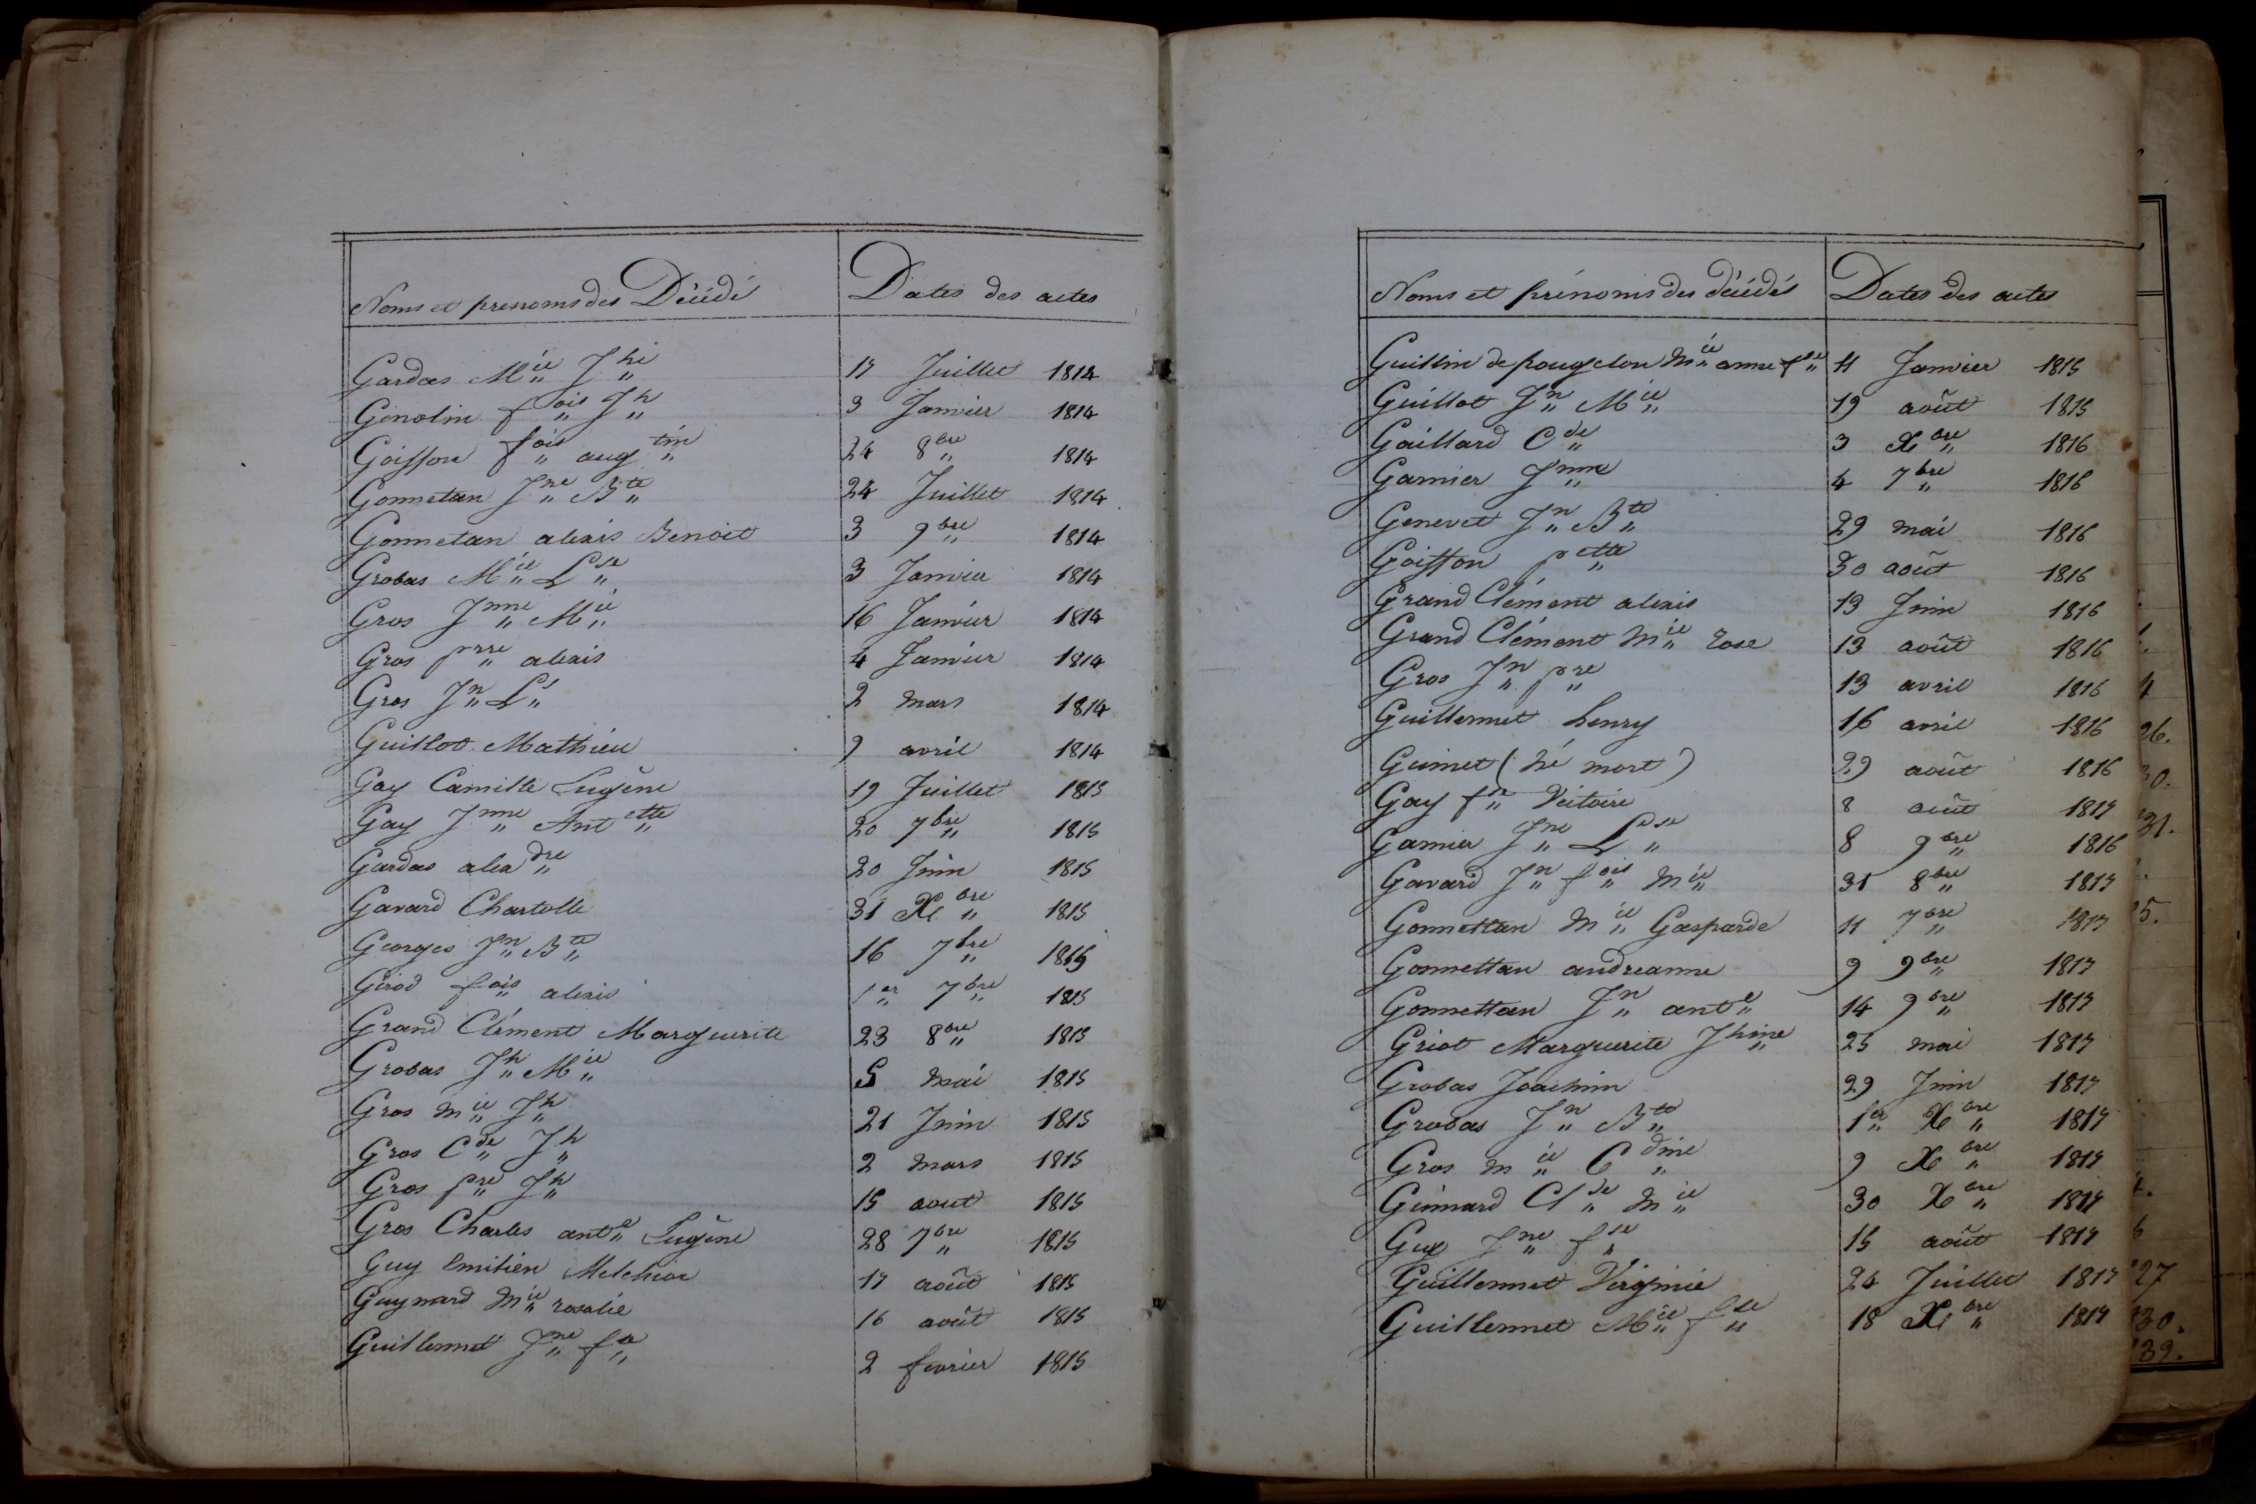 Noms et prenoms des Décédé Dates des actes
Gardas M^ie J^he 17 Juillet 1814
Genolin f^ois J^h 3 Janvier 1814
Goiffon f^ois aug^tin 24 8^bre 1814
Gonnetan J^ne B^te 24 Juillet 1814
Gonnetan alexis Benoit 3 9^bre 1814
Grobas M^ie L^se 3 Janvier 1814
Gros J^nne M^ie 16 Janvier 1814
Gros p^rre alexis 4 Janvier 1814
Gros J^n L^s 2 mars 1814
Guillot Mathieu 9 avril 1814
Gay Camille Eugène 19 Juillet 1815
Gay J^nne Ant^ette 20 7^bre 1815
Gardas alex^dre 20 Juin 1815
Gavard Charlotte 31 X^bre 1815
Georges J^n B^te 16 7^bre 1815
Girod f^ois alexis 1^er 7^bre 1815
Grand Clément Marguerite 23 8^bre 1815
Grobas J^h M^ie 5 mai 1815
Gros m^ie J^h 21 Juin 1815
Gros C^de J^h 2 mars 1815
Gros p^re J^h 15 aout 1815
Gros Charles ant^e Eugène 28 7^bre 1815
Guy Emilien Melchior 17 août 1815
Guynard M^ie rosalie 16 août 1815
Guillermet J^ne f^se 2 fevrier 1815
Noms et prénoms des décédés Dates des actes
Guillin de pougelon M^ie anne f^se 11 Janvier 1815
Guillot J^n M^ie 19 août 1815
Gaillard C^de 3 X^bre 1816
Garnier J^nne 4 7^bre 1816
Genevet J^n B^te 29 mai 1816
Goiffon p^ette 30 août 1816
Grand Clément alexis 13 Juin 1816
Grand Clément M^ie rose 13 août 1816
Gros J^n p^re 13 avril 1816
Guillermet henry 16 avril 1816
Guimet (né mort) 29 août 1816
Gay f^se Victoire 8 août 1817
Garnier J^ne L^se 8 9^bre 1816
Gavard J^n f^ois M^ie 31 8^bre 1817
Gonnettan M^ie Gasparde 11 7^bre 1817
Gonnettan andreanne 9 9^bre 1817
Gonnettan J^n ant^e 14 9^bre 1817
Griot Marguerite J^hine 25 mai 1817
Grobas Joachim 29 Juin 1817
Grobas J^n B^te 1^er X^bre 1817
Gros m^ie C^dine 9 X^bre 1817
Guinard Cl^de M^ie 30 X^bre 1817
Guy J^ne f^se 15 août 1817
Guillermet Virginie 24 Juillet 1817
Guillermet M^ie f^se 18 X^bre 1817